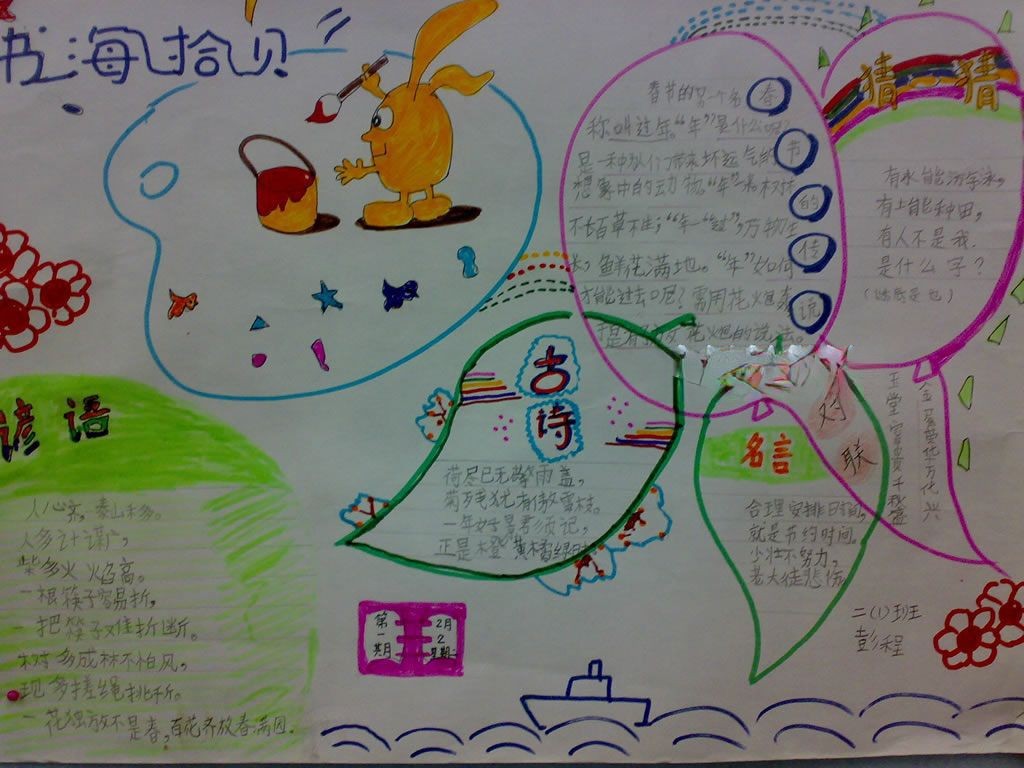 书海拾贝
谚语
人心齐，泰山移。
人多计谋广，
柴多火焰高。
一根筷子容易折，
一把筷子难折断。
树多成林不怕风，
一花独放不是春，百花齐放春满园。
古诗
荷尽已无擎雨盖，
菊残犹有傲雪枝。
一年好景君须记，
正是橙黄橘绿时
第一期
2月
2
星期二
春节的传说
春节的另一个名
称叫过年。“年”是什么呢？
是一种为人们带来坏运气的
想象中的动物。“年”
不长百草不生；“年”一“过”，万物生
长，鲜花满地。“年”如何
才能过去呢？需用花火
花炮的说法。
猜一猜
有水能游泳，
有土能种田，
有人不是我，
是什么字？
（谜底是也）
对联
金
荣华万代兴
玉堂富贵千秋盛
名言
合理安排时间，
就是节约时间。
少壮不努力，
老大徒悲伤
二（1）班
彭程